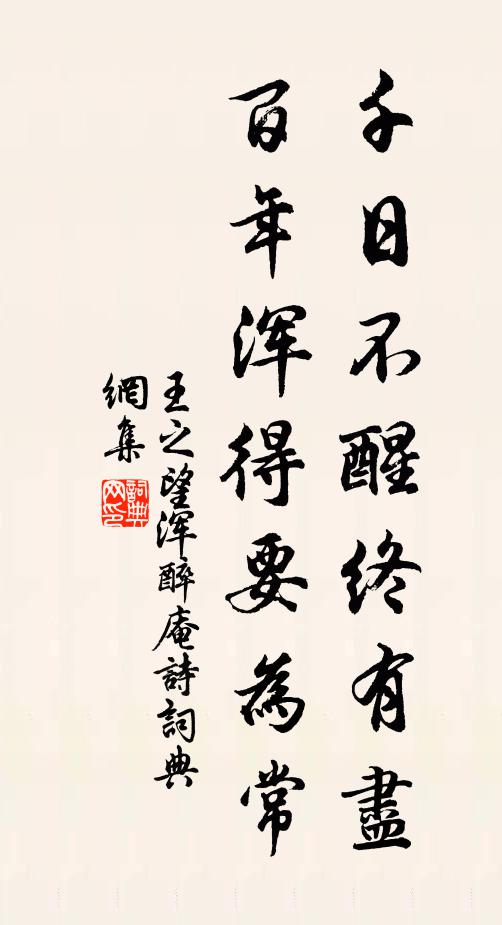 千日不醒終有盡
百年渾得要為常
王之望渾醉庵詩詞典
網集
詞典網印